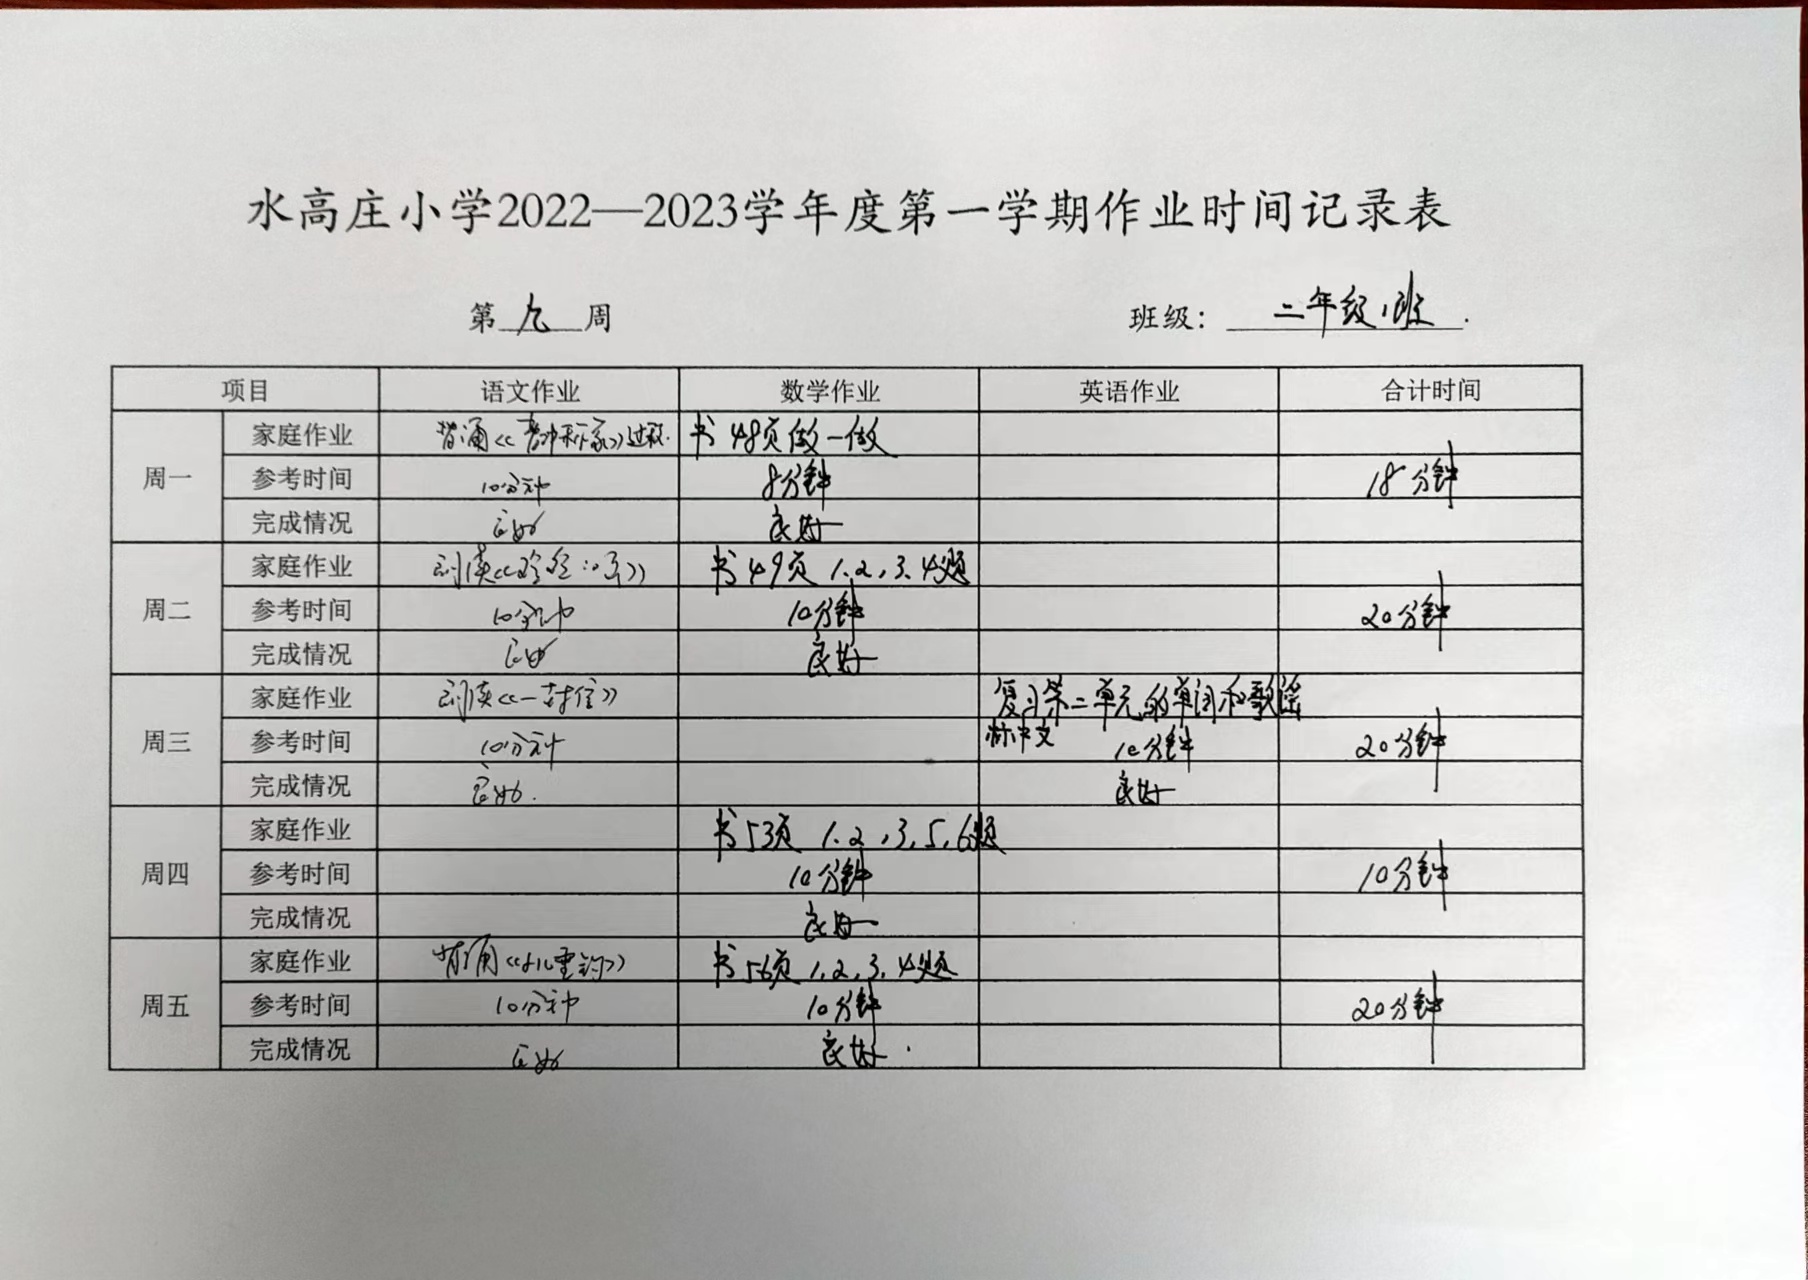 水高庄小学2022—2023学年度第一学期作业时间记录表
第 九 周 班级： 二年级1班
项目 语文作业 数学作业 英语作业 合计时间
周一 家庭作业 背诵《曹冲称象》过程. 书48页做一做
参考时间 10分钟 8分钟 18分钟
完成情况 良好 良好
周二 家庭作业 朗读《玲玲的画》 书49页 1、2、3、4题
参考时间 10分钟 10分钟 20分钟
完成情况 良好 良好
周三 家庭作业 朗读《一封信》 复习第二单元的单词和歌谣
标中文
参考时间 10分钟 10分钟 20分钟
完成情况 良好. 良好
周四 家庭作业 书53页 1、2、3、5、6题
参考时间 10分钟 10分钟
完成情况 良好
周五 家庭作业 背诵 书56页 1、2、3、4题
参考时间 10分钟 10分钟 20分钟
完成情况 良好 良好.